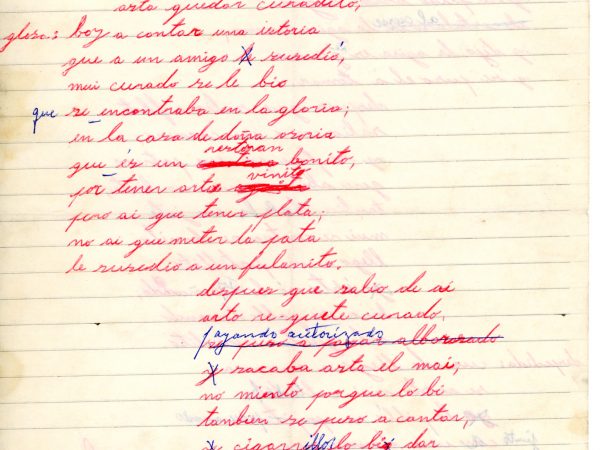 arta quedar curadito,
glosa: boy a contar una istoria
que a un amigo le susedió,
mui curado se le bio
que se encontraba en la gloria;
en la casa de doña osoria
que és un restoran bonito,
por tener arto vinito
pero ai que tener plata;
no ai que meter la pata
le susedio a un fulanito.
despues que salio de ai
arto re-guete curado,
payando autorizado
se puso a payar alborosado
y sacaba arta el mai;
no miento porque lo bi
tanbien se puso a cantar,
cigarrillos lo bi dar